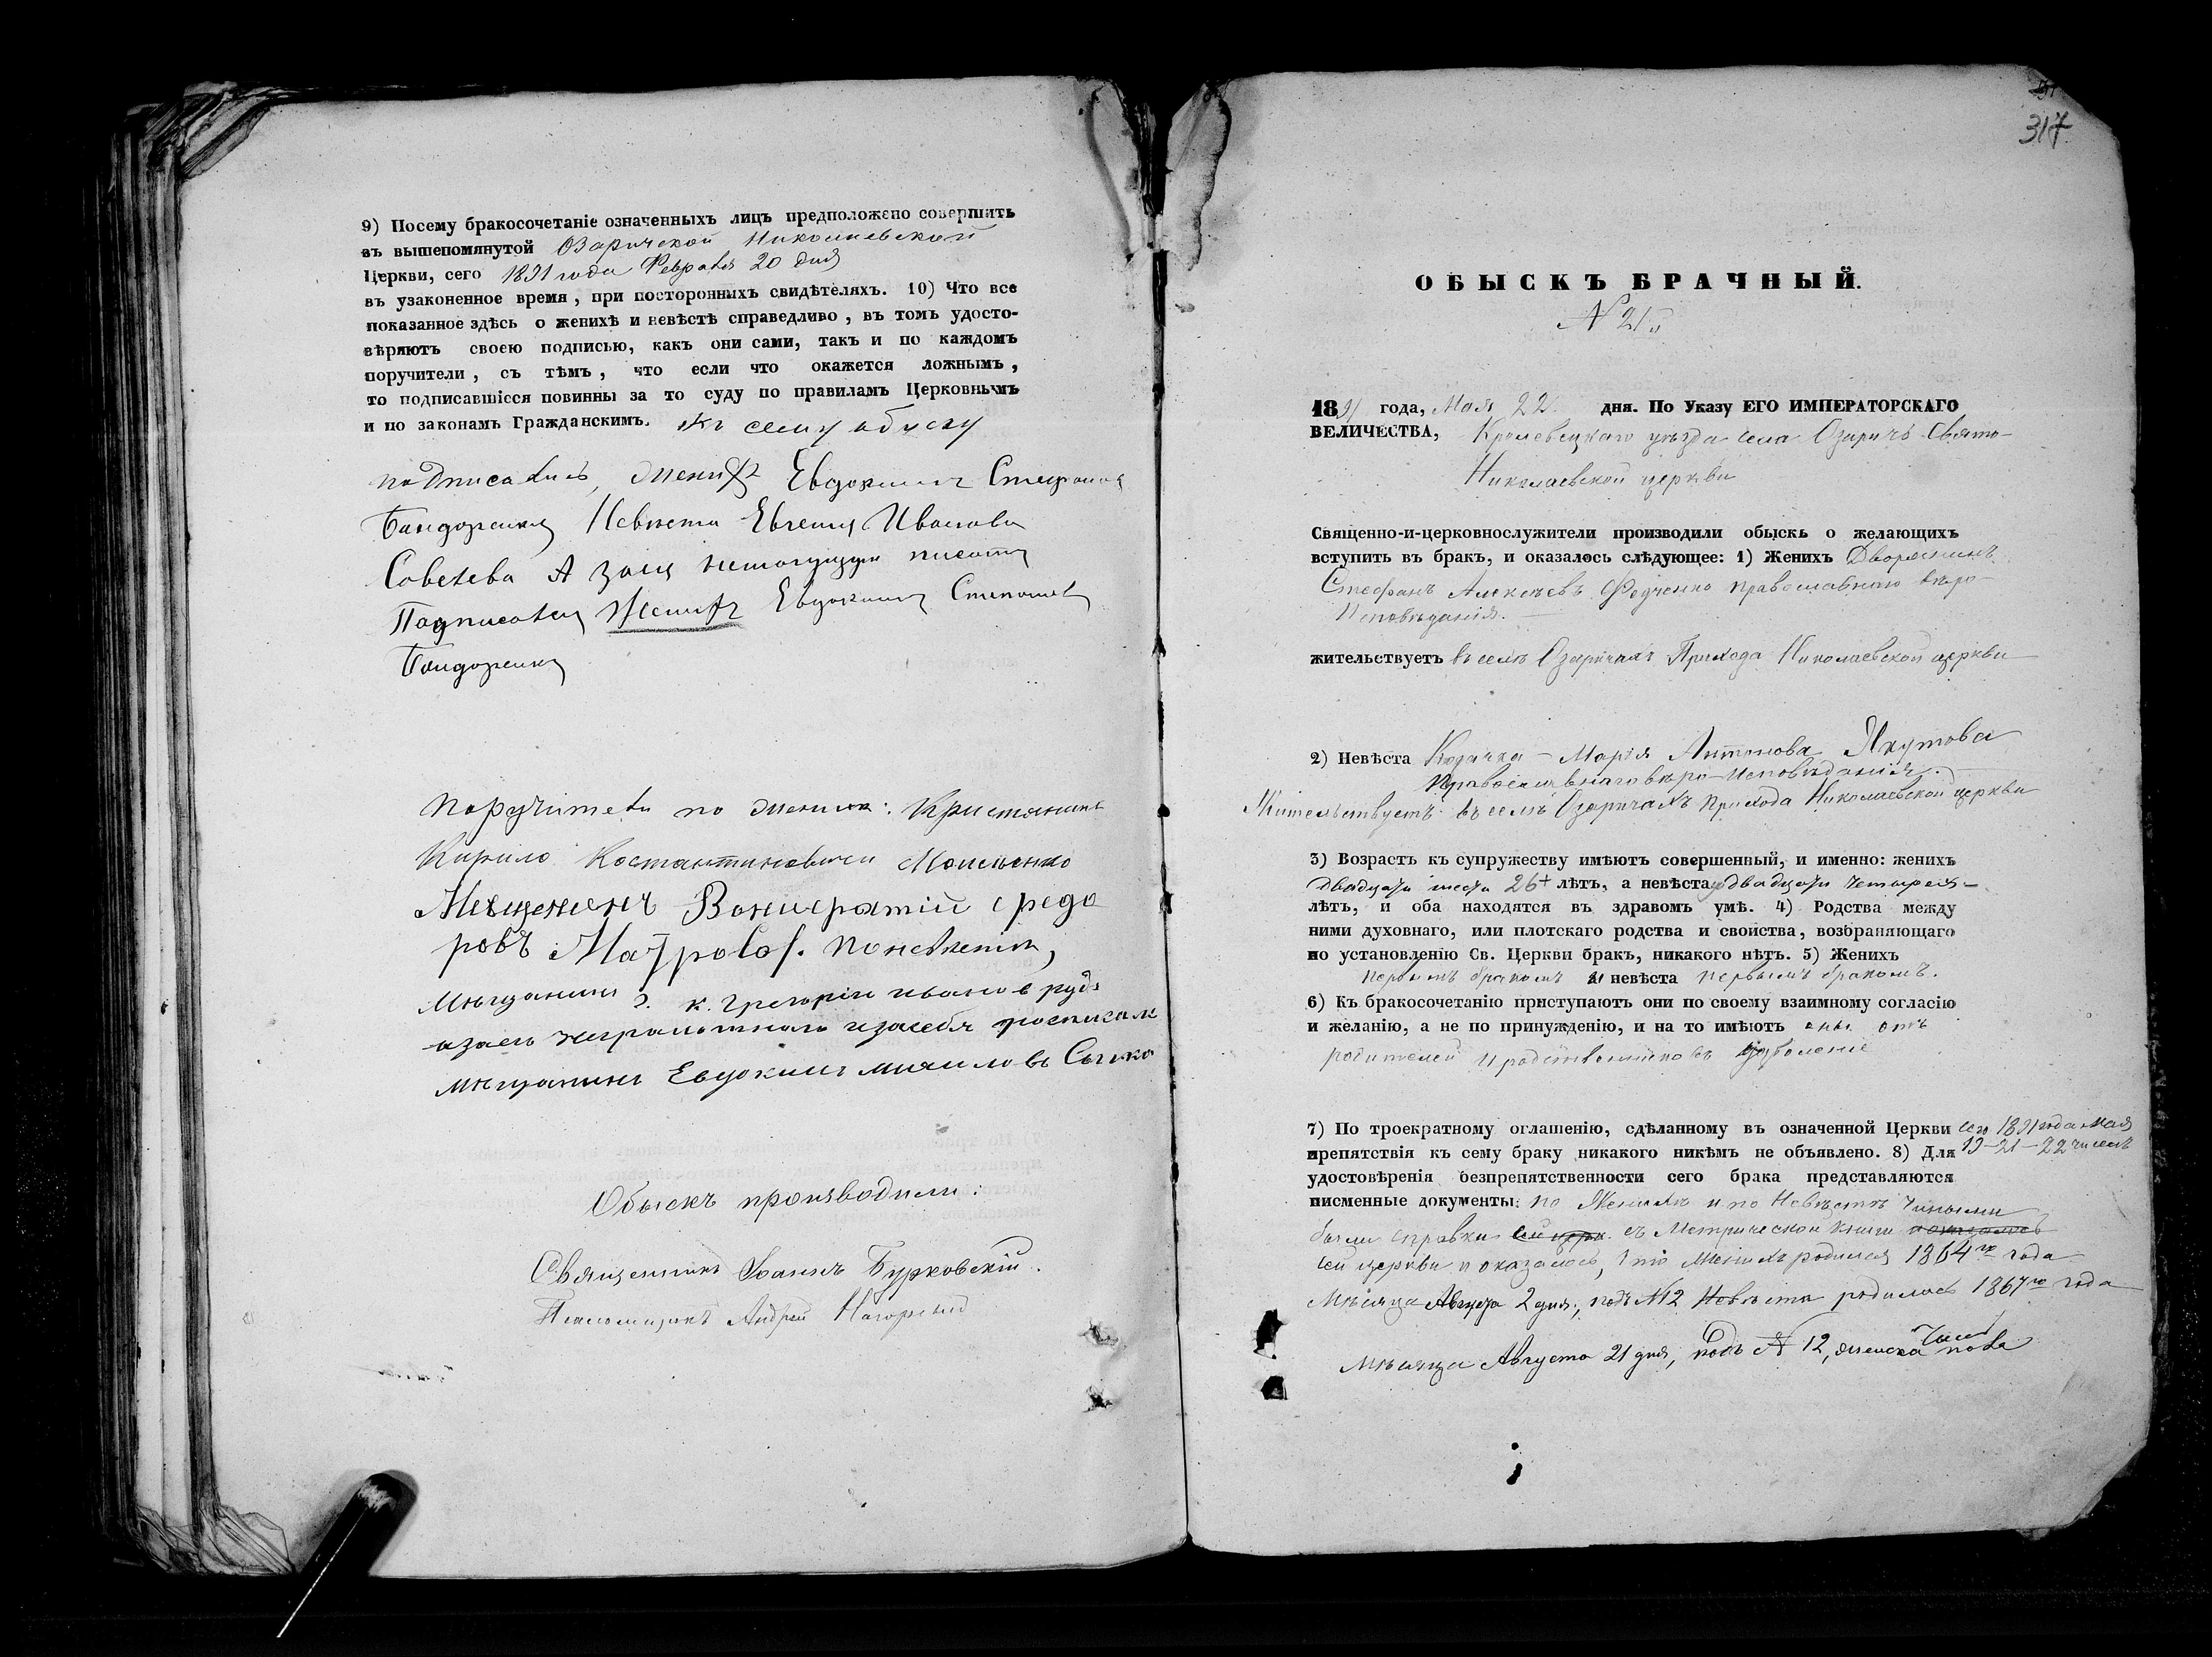 9) Посему бракосочетаніе означенныхъ лицъ предположено совершить
въ вышепомянутой Озаричской Николаевской
Церкви, сего 1891 года Февраля 20 дня
въ узаконенное время, при постороннихъ свидѣтеляхъ. 10) Что все
показанное здѣсь о женихѣ и невѣстѣ справедливо, въ томъ удосто-
вѣряютъ своею подписью, какъ они сами, такъ и по каждомъ
поручители, съ тѣмъ, что если что окажется ложнымъ,
то подписавшіеся повинны за то суду по правиламъ Церковнымъ
и по законамъ Гражданскимъ. Къ сему обыску
подписались, женихъ Евдокимъ Стефановъ
Бондоренко Невѣста Евгения Иванова
Советева А заец неточуцуц писати
Подписовец Женихъ Евдокимъ Степановъ
Бондоренко
Поручители по женихѣ: Кристянинъ
Кирило Костантиновичи
Мещененъ Вонифатій
ровъ По невѣсти,
мѣщанинъ Григорій Иванов руд
азаец неграмотнаго изасебя росписался
мѣщанинъ Евдокимъ михиловъ
Обыскъ производили:
Священникъ Іоаннъ Бурковскій.
Псаломщикъ Андрей Нагорный
317
ОБЫСКЪ БРАЧНЫЙ.
N 21й
1891 года, Мая 22 дня. По Указу ЕГО ИМПЕРАТОРСКАГО
ВЕЛИЧЕСТВА, Кролевецкаго уѣзда села Озаричъ Свято-
Николаевской церкви
Священно-и-церковнослужители производили обыскъ о желающихъ
вступить въ бракъ, и оказалось слѣдующее: 1) Женихъ Дворянинъ
Стефанъ Алексѣевъ Федченко православнаго вѣро-
Исповѣданія.
жительствуетъ въ селѣ Озаричахъ Прихода Николаевской церкви
2) Невѣста Козачка - Марія Антонова Якутова
Православнаго вѣро-исповѣданія.
Жительствуетъ въ селѣ Озаричахъ прихода Николаевской церкви
3) Возрастъ къ супружеству имѣютъ совершенный, и именно: женихъ
двадцати шести 26 лѣтъ, а невѣста двадцати четырехъ-
лѣтъ, и оба находятся въ здравомъ умѣ. 4) Родства между
ними духовнаго, или плотскаго родства и свойства, возбраняющаго
по установленію Св. Церкви бракъ, никакого нѣтъ. 5) Женихъ
первымъ бракомъ и невѣста первымъ бракомъ.
6) Къ бракосочетанію приступаютъ они по своему взаимному согласію
и желанію, а не по принужденію, и на то имѣютъ они отъ
родителей и родственниковъ дозволеніе
7) По троекратному оглашенію, сдѣланному въ означенной Церкви сего 1891 года мая
препятствія къ сему браку никакого никѣмъ не объявлено. 8) Для 19-21-22 числъ
удостовѣренія безпрепятственности сего брака представляются
писменные документы: по Женихѣ и по Невѣстѣ чинимы
были справки съ Метрической книги
сей церкви и оказалось, что женихъ родился 1864го года
Мѣсяца Августа 2 дня, подъ №12 Невѣста родилась 1867го года
мѣсяца Августа 21 дня, подъ № 12, женска пола